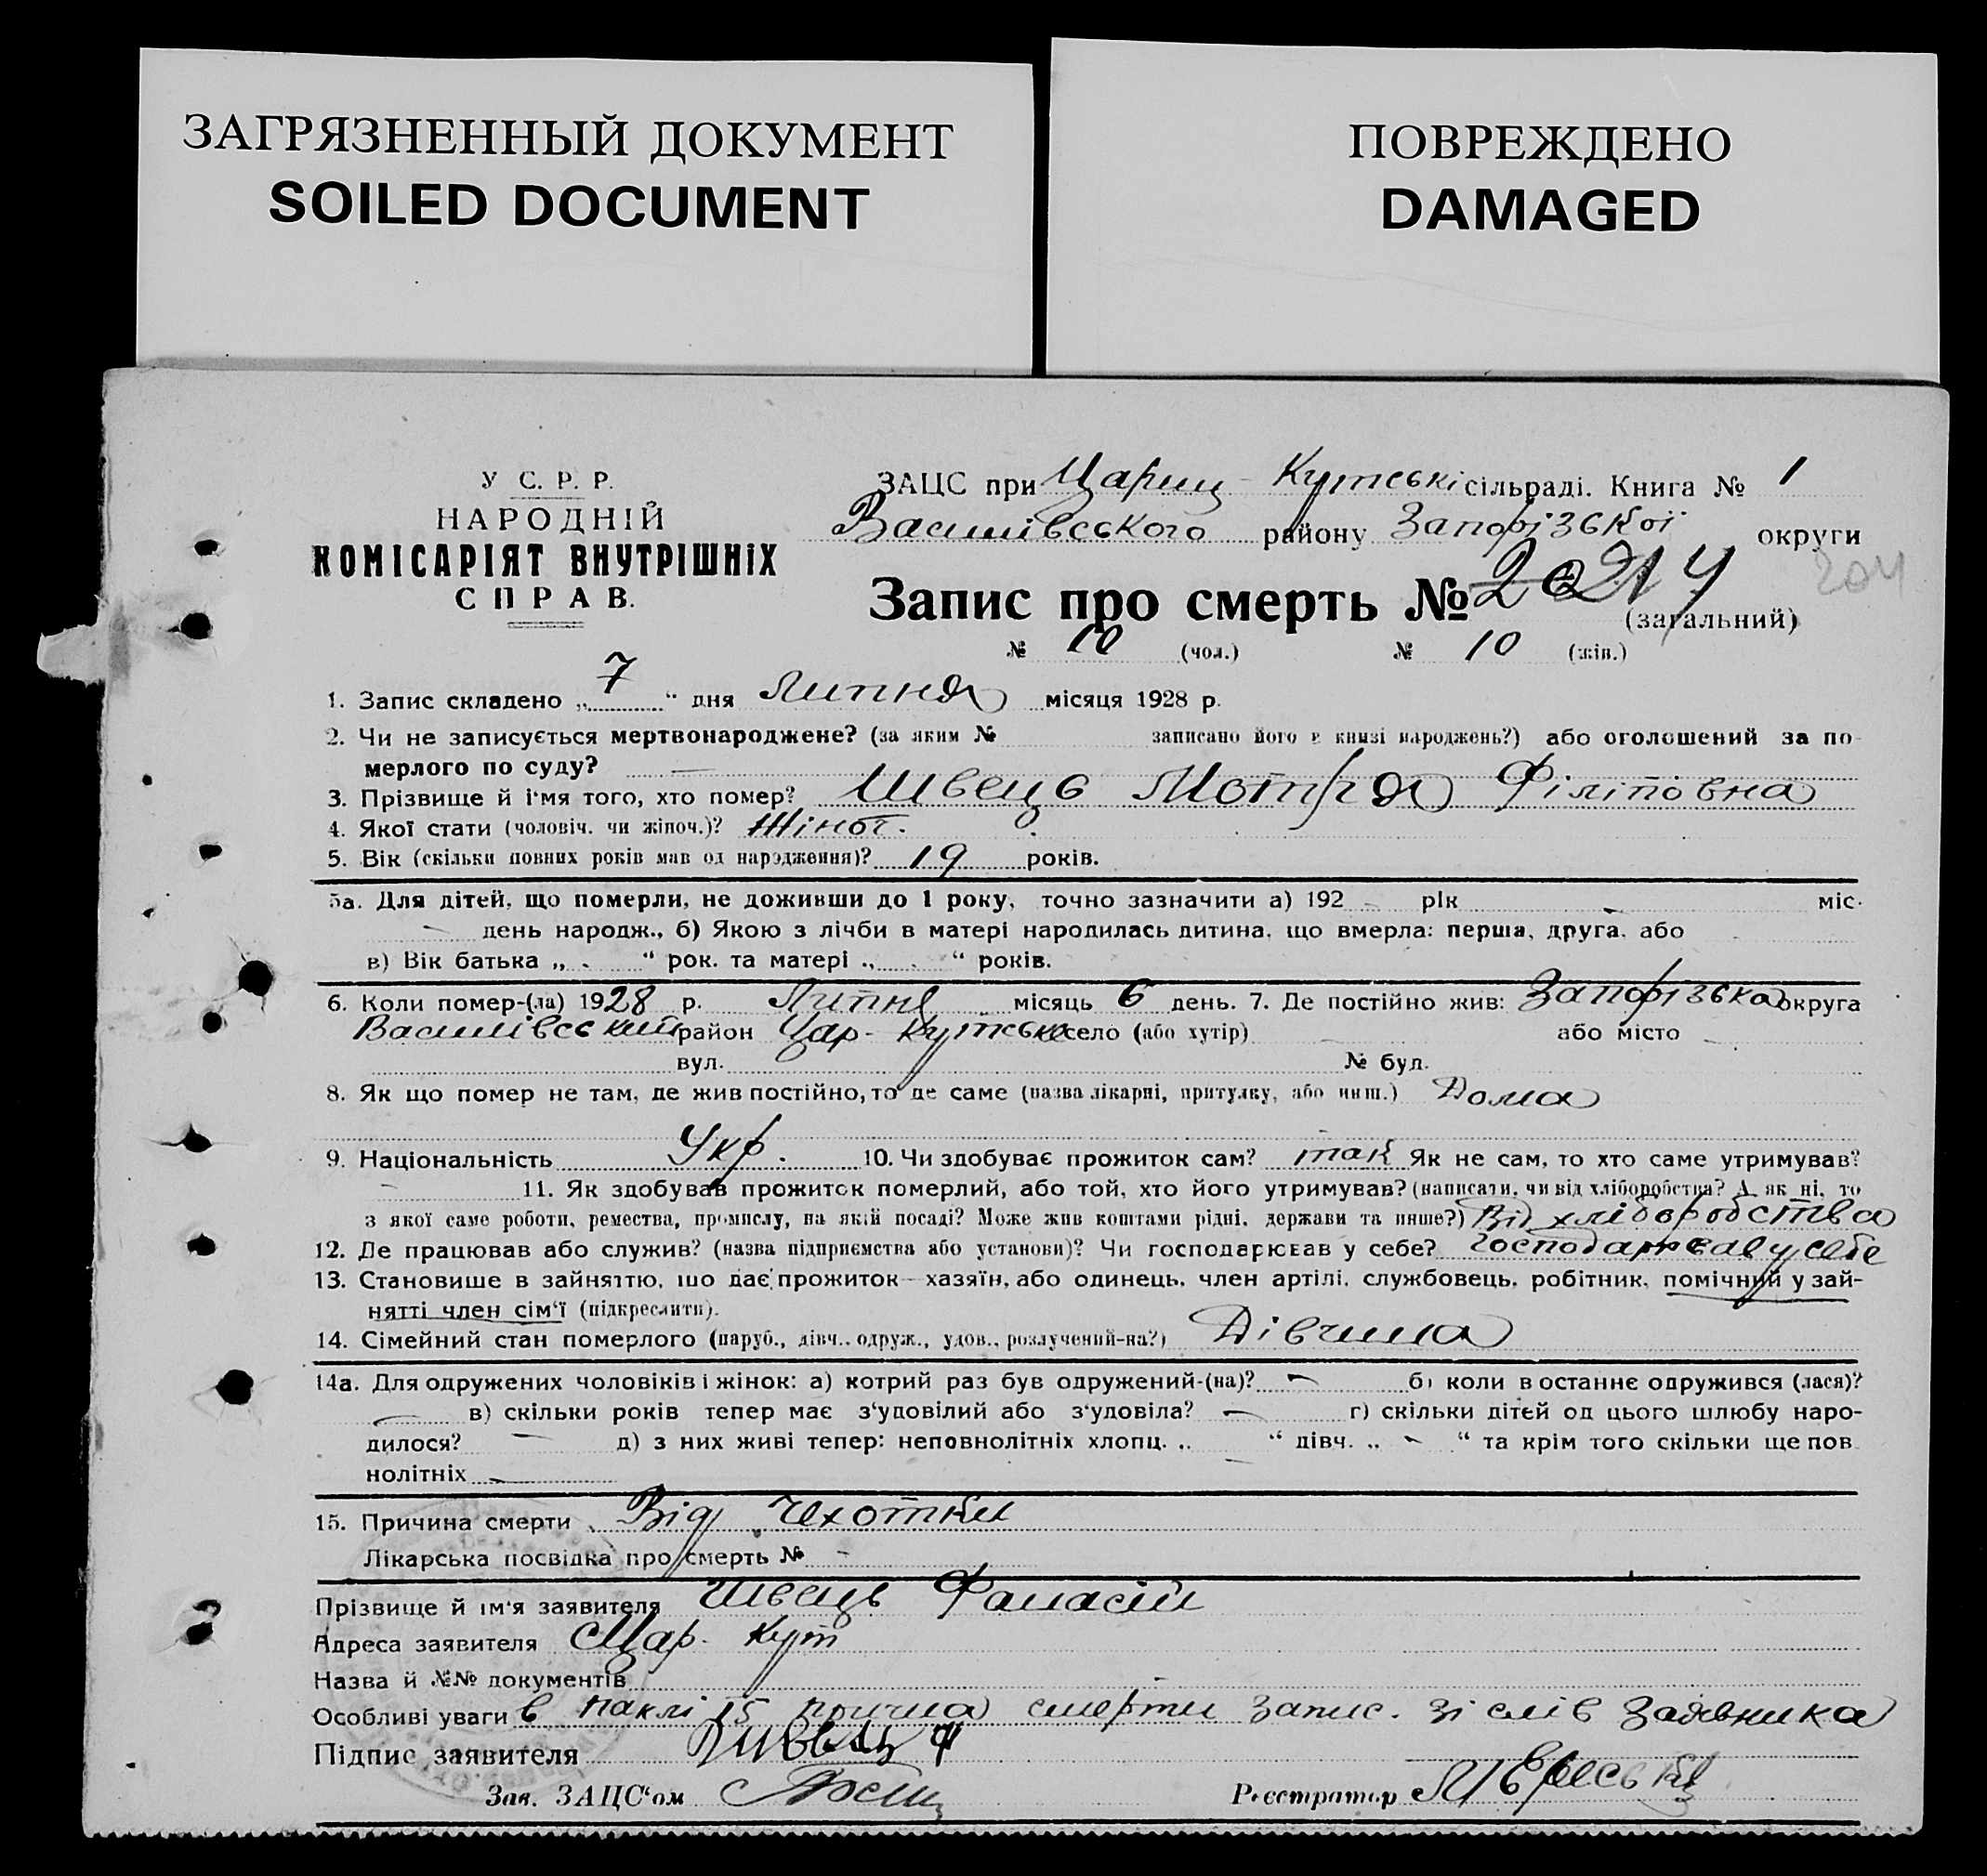 ЗАГРЯЗНЕННЫЙ ДОКУМЕНТ
SOILED DOCUMENT
ПОВРЕЖДЕНО
DAMAGED
У С. Р. Р.
НАРОДНІЙ
КОМІСАРІЯТ ВНУТРІШНІХ
СПРАВ.
ЗАЦС при Цариц-Кутські сільраді. Книга № 1
Василівського району Запорізької округи
Запис про смерть № 204
(загальний)
№ 10 (чол.) № 10 (жін.)
1. Запис складено „ 7 “ дня Липня місяця 1928 р.
2. Чи не записується мертвонароджене? (за яким № записано його в книзі народжень?) або оголошений за по-
мерлого по суду? —
3. Прізвище й ім'я того, хто помер? Швець Мотря Філіповна
4. Якої стати (чоловіч. чи жіноч.)? Жіноч.
5. Вік (скільки повних років мав од народження)? 19 років.
5а. Для дітей, що померли, не доживши до 1 року, точно зазначити а) 192 - рік - міс.
- день народж., б) Якою з лічби в матері народилась дитина, що вмерла: перша, друга, або
в) Вік батька „ - “ рок. та матері „ - “ років.
6. Коли помер-(ла) 1928 р. Липня місяць 6 день. 7. Де постійно жив: Запорізька округа
Василівський район Цар-Кутське село (або хутір) або місто -
вул. № буд.
8. Як що помер не там, де жив постійно, то де саме (назва лікарні, притулку, або инш.) Дома
9. Національність Укр. 10. Чи здобуває прожиток сам? так Як не сам, то хто саме утримував?
- 11. Як здобував прожиток померлий, або той, хто його утримував? (написати, чи від хліборобства? А як ні, то
з якої саме роботи, ремества, промислу, на якій посаді? Може жив коштами рідні, держави та инше?) Від хліборобства
12. Де працював або служив? (назва підприємства або установи)? Чи господарював у себе? господарював у себе
13. Становище в зайняттю, що дає прожиток—хазяїн, або одинець, член артілі, службовець, робітник, помічний у зай-
нятті член сім'ї (підкреслити).
14. Сімейний стан померлого (паруб., дівч., одруж., удов., розлучений-на?) Дівчина
14а. Для одружених чоловіків і жінок: а) котрий раз був одружений-(на)? - б) коли востаннє одружився (лася)?
- в) скільки років тепер має з'удовілий або з'удовіла? - г) скільки дітей од цього шлюбу наро-
дилося? - д) з них живі тепер: неповнолітніх хлопц. „ “ дівч. „ - “ та крім того скільки ще пов
нолітніх -
15. Причина смерти Від Чехотки
Лікарська посвідка про смерть № -
Прізвище й ім'я заявителя Швець Фанасій
Адреса заявителя С Цар. Кут
Назва й №№ документів
Особливі уваги в 15 причина смерти запис. зі слів Заявника
Підпис заявителя Швець Ф
Зав. ЗАЦС'ом
Реєстратор